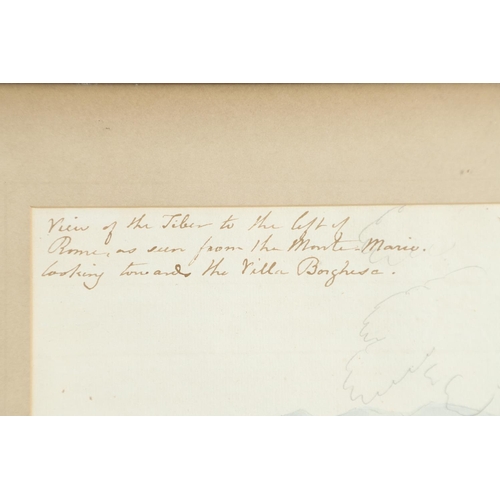 View of the Tiber to the left of
Rome, as seen from the Monte Mario.
looking towards the Villa Borghesa.